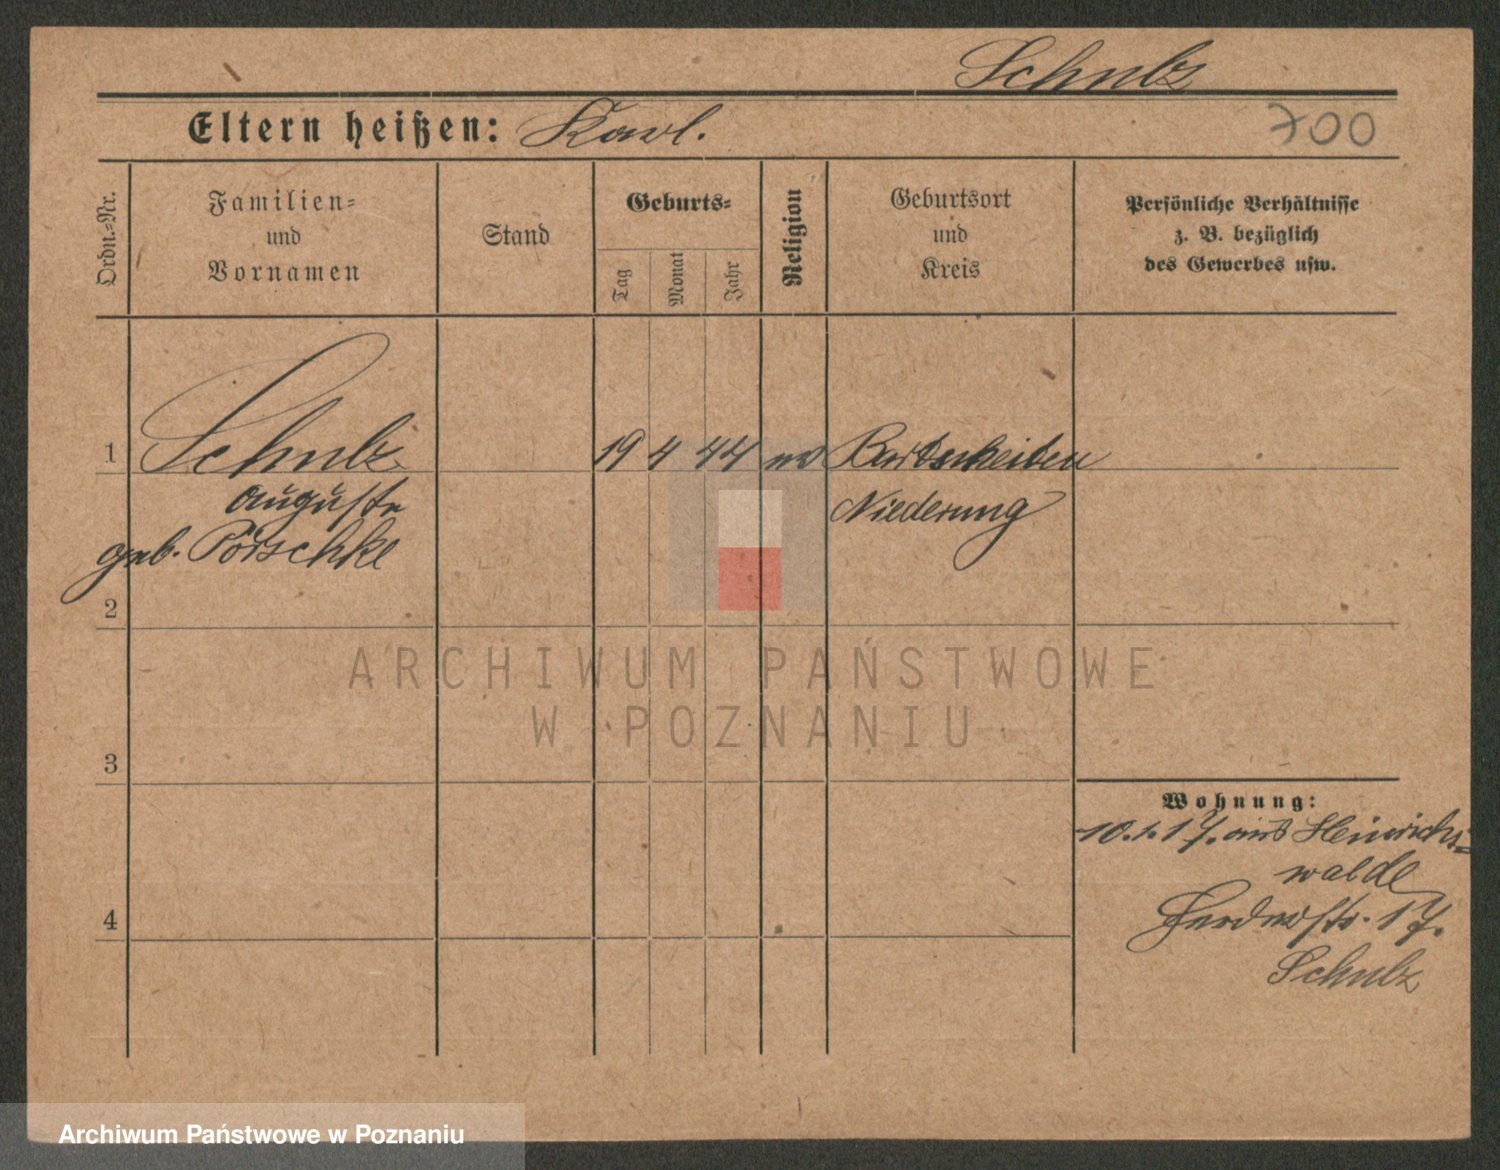 Schulz
Eltern heißen: Karl.
700
Ordn.-Nr.
Familien-
und
Vornamen
Stand
Geburts-
Tag
Monat
Jahr
Religion
Geburtsort
und
Kreis
Persönliche Verhältnisse
z. B. bezüglich
des Gewerbes usw.
1
Schulz
Auguste
geb. Pörschke
19 4 44 ev Bartscheiten
Niederung
2
3
4
Wohnung:
10.1.17. aus Heinrichs-
walde
17.
Schulz
ARCHIWUM PAŃSTWOWE
W POZNANIU
Archiwum Państwowe w Poznaniu